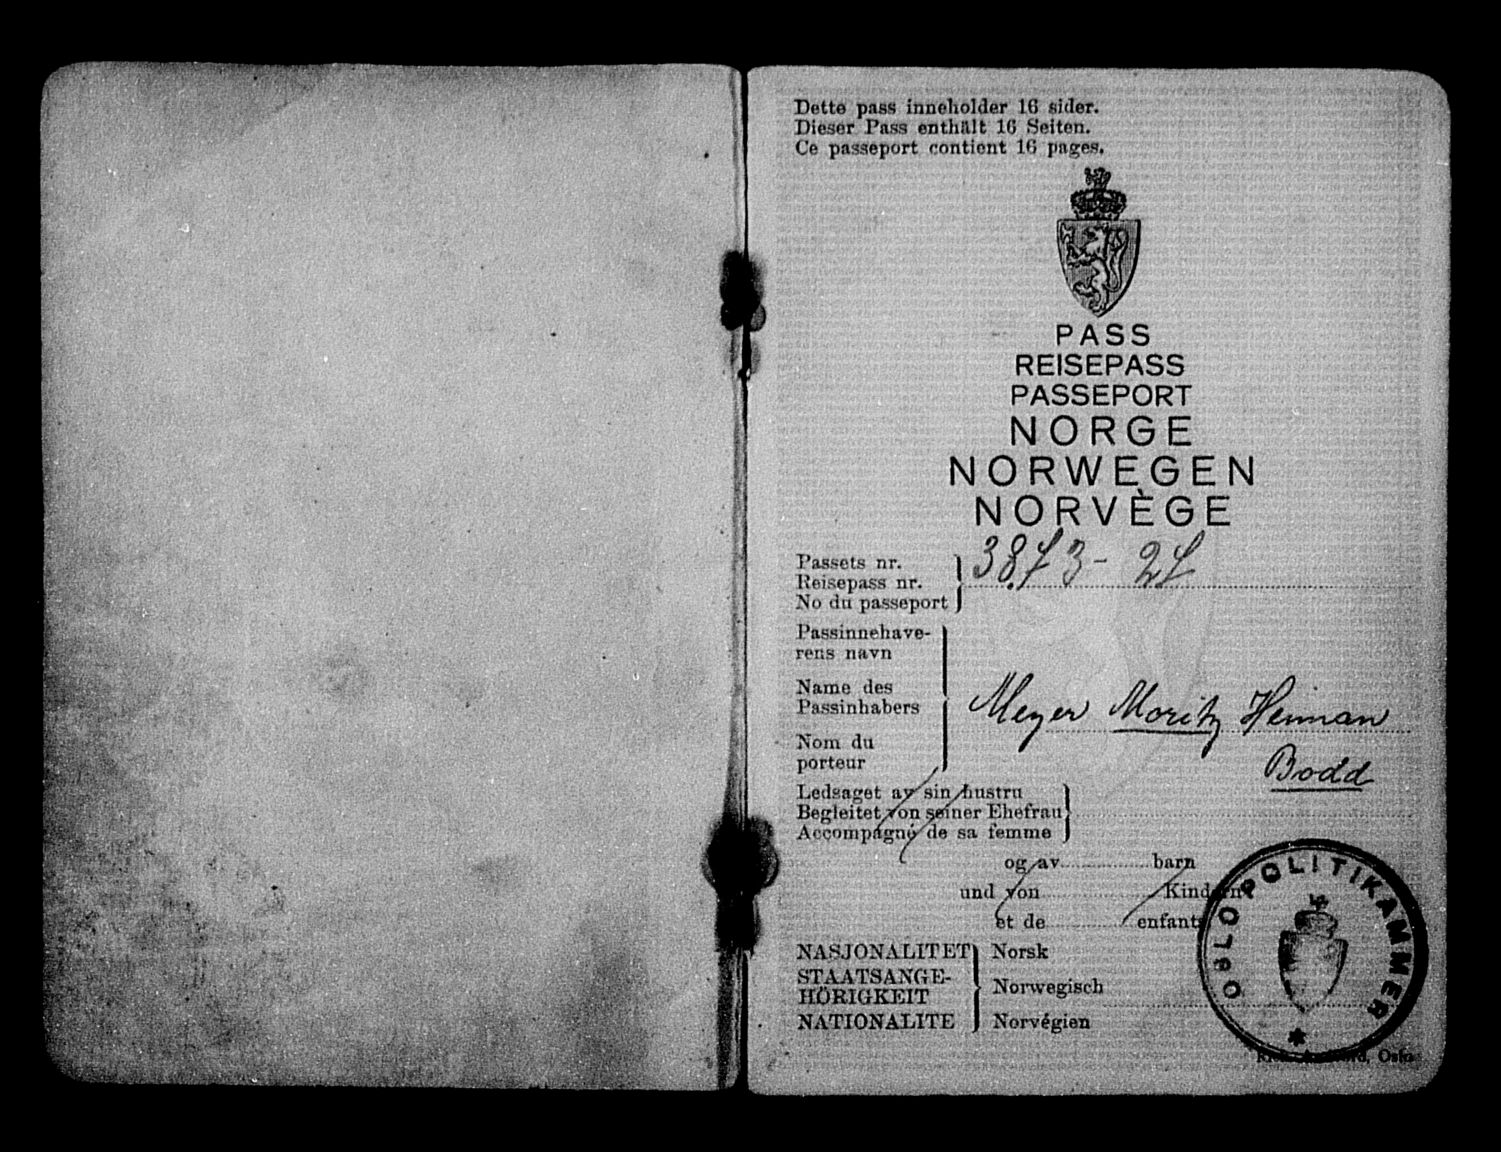 Dette pass inneholder 16 sider.
Dieser Pass enthält 16 Seiten.
Ce passeport contient 16 pages.
PASS
REISEPASS
PASSEPORT
NORGE
NORWEGEN
NORVÈGE
Passets nr.
Reisepass nr.
No du passeport
3873- 27
Passinnehave-
rens navn
Name des
Passinhabers
Nom du
porteur
Meyer Moritz Heiman
Bodd
Ledsaget av sin hustru
Begleitet von seiner Ehefrau
Accompagné de sa femme
og av barn
und von Kindern
et de enfants
NASJONALITET
STAATSANGE-
HÖRIGKEIT
NATIONALITE
Norsk
Norwegisch
Norvégien
OSLO POLITIKAMMER
Oslo